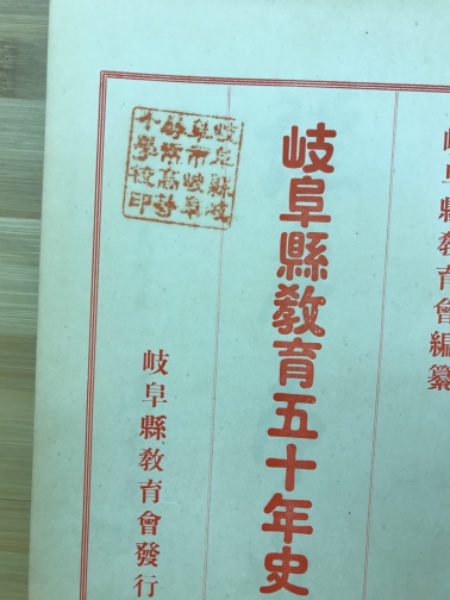 岐阜縣教育會編纂
岐阜縣教育五十年史
岐阜縣岐
阜市岐阜
尋常高等
小學校印
岐阜縣教育會發行